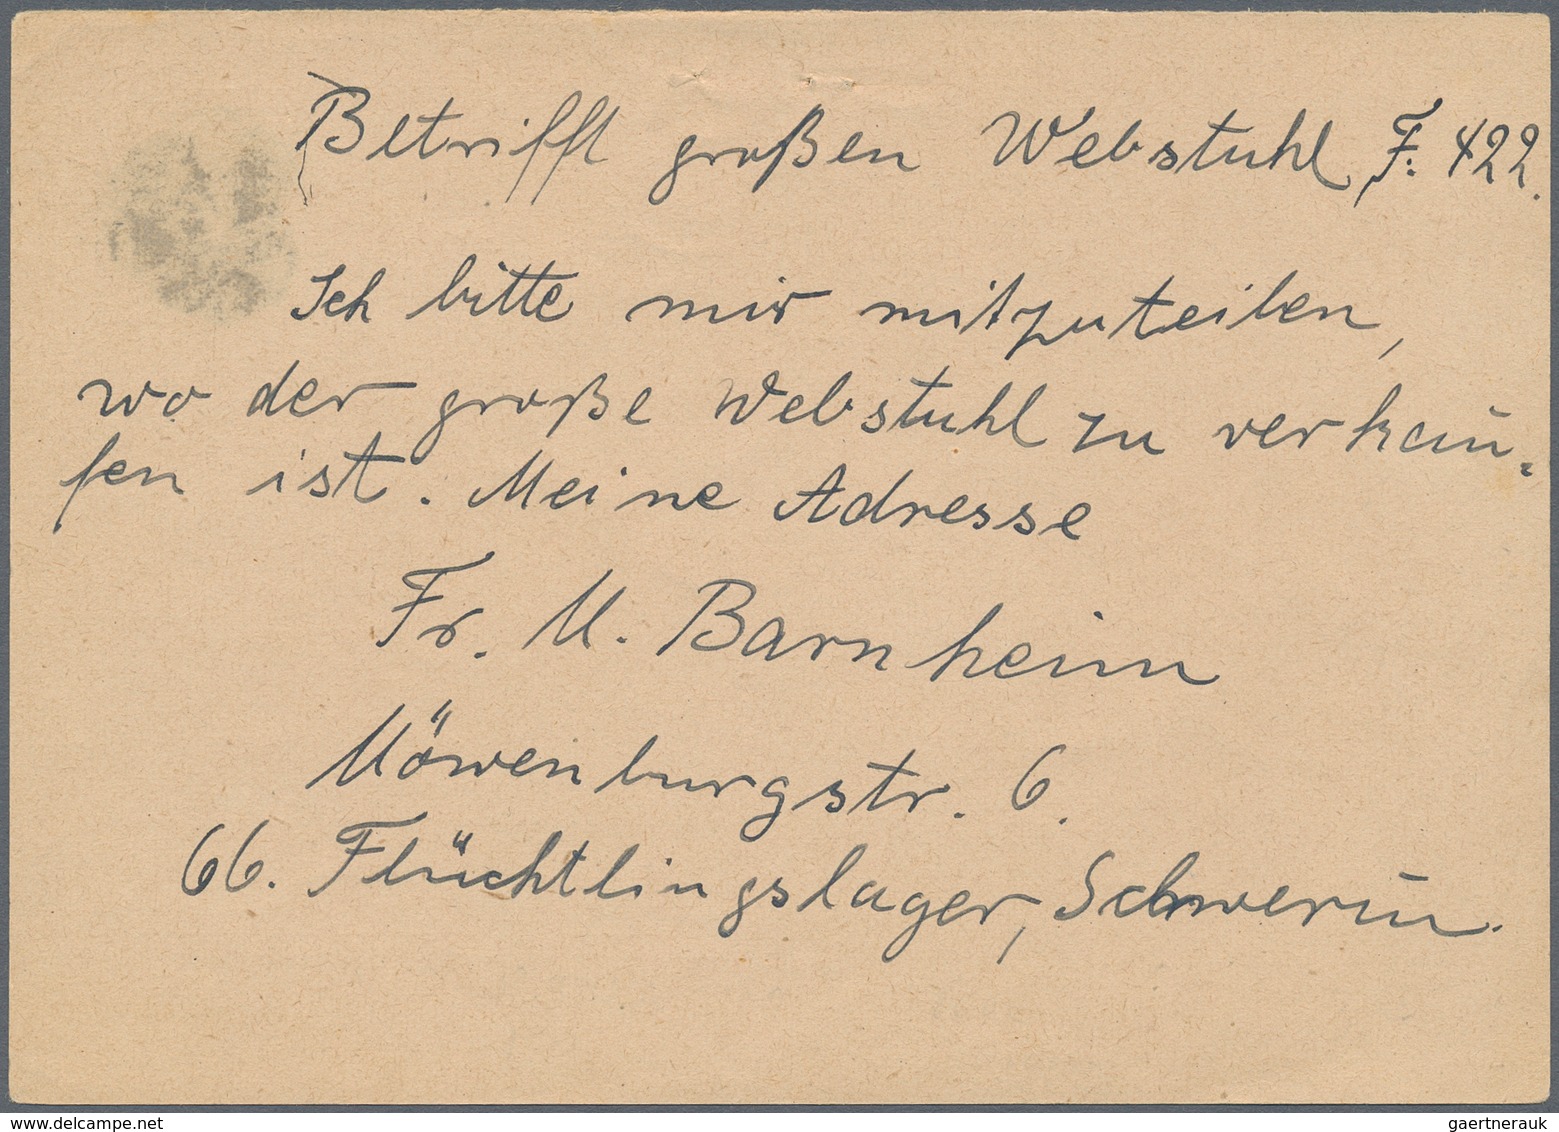 Betrifft großen Webstuhl F. 422.
Ich bitte mir mitzuteilen,
wo der große Webstuhl zu verkau-
fen ist. Meine Adresse
Fr. M. Barnheim
Möwenburgstr. 6.
66. Flüchtlingslager, Schwerin.
www.delcampe.net
gaertnerauk